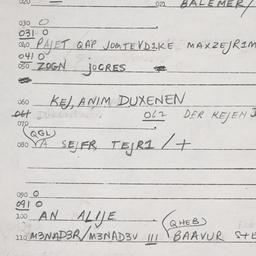 020 021 BALEMER/
030 O
031 O
040 PAJET QAP JOMTEVD1KE MAXZEJR1M
041 O
050 ZOGN jOCRES
060 KEJ, ANIM DUXENEN
061 062 DER KEJEN J
070
(QGL)
080 YA SEJFR TEJR1 / +
090 O
091 O
100 AN ALIJE
(QHEB)
110 M3NAD3R/M3NAD3V III BAAVUR STE